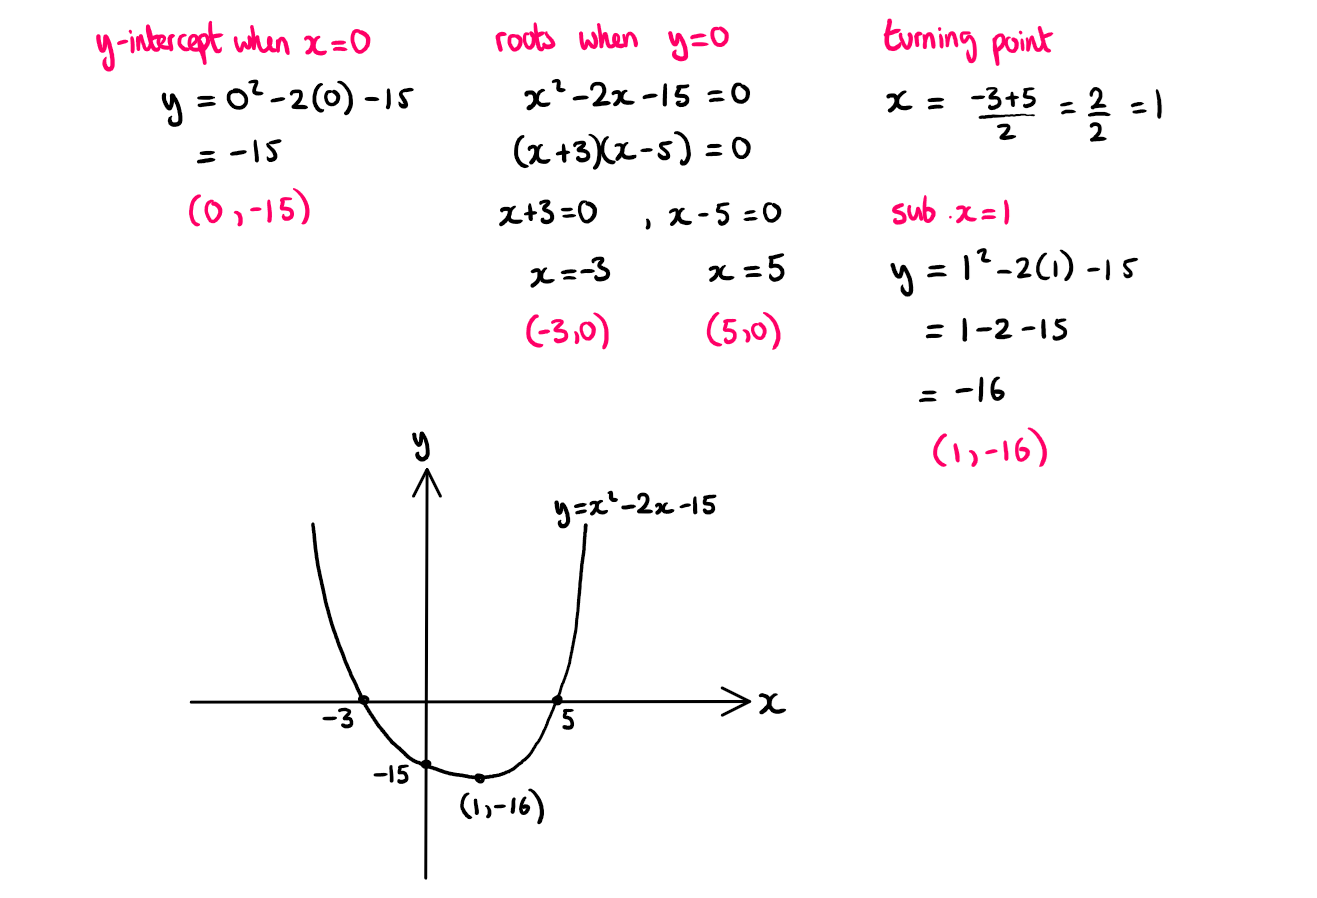 y-intercept when x=0
y = 0² -2(0) -15
= -15
(0, -15)
roots when y=0
x² -2x -15 = 0
(x+3)(x-5) = 0
x+3=0 , x-5=0
x=-3 x=5
(-3,0) (5,0)
turning point
x = \frac{-3+5}{2} = \frac{2}{2} = 1
sub x=1
y = 1² -2(1) -15
= 1-2-15
= -16
(1,-16)
y
y=x²-2x-15
x
-3
5
-15
(1,-16)